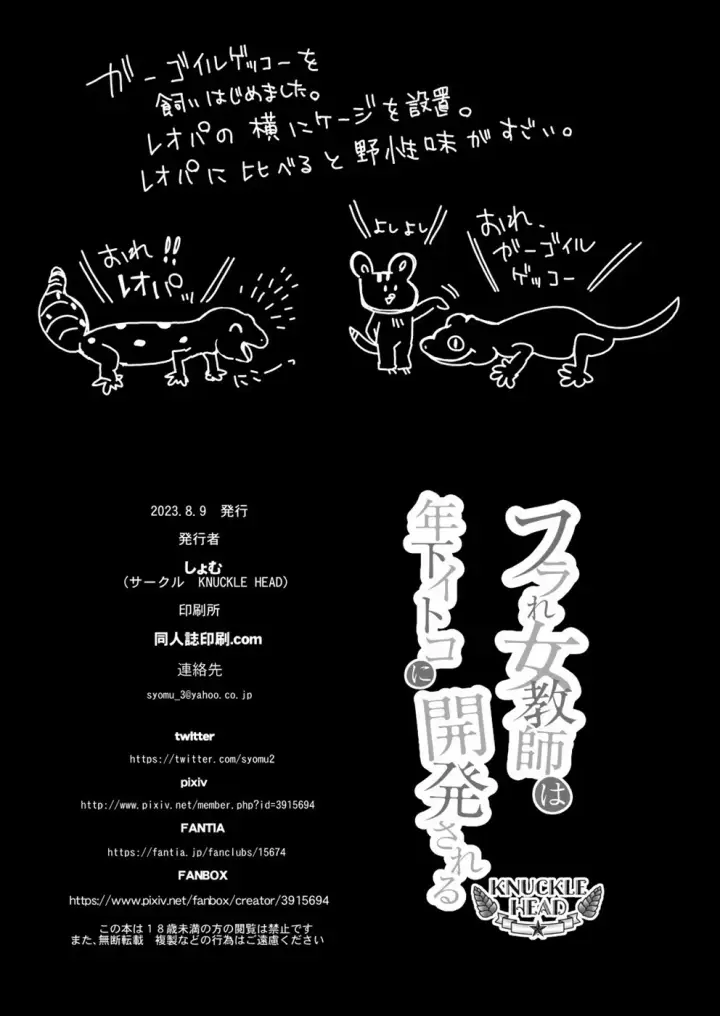 ガーゴイルゲッコーを
飼いはじめました。
レオパの横にケージを設置。
レオパに比べると野性味がすごい。
おれ!!
レオパッ
にこーっ
よしよし
おれ、
ガーゴイル
ゲッコー
フラれ女教師は
年下イトコに
開発される
KNUCKLE
HEAD
2023.8.9 発行
発行者
しょむ
(サークル KNUCKLE HEAD)
印刷所
同人誌印刷.com
連絡先
syomu_3@yahoo.co.jp
twitter
https://twitter.com/syomu2
pixiv
http://www.pixiv.net/member.php?id=3915694
FANTIA
https://fantia.jp/fanclubs/15674
FANBOX
https://www.pixiv.net/fanbox/creator/3915694
この本は18歳未満の方の閲覧は禁止です
また、無断転載 複製などの行為はご遠慮ください